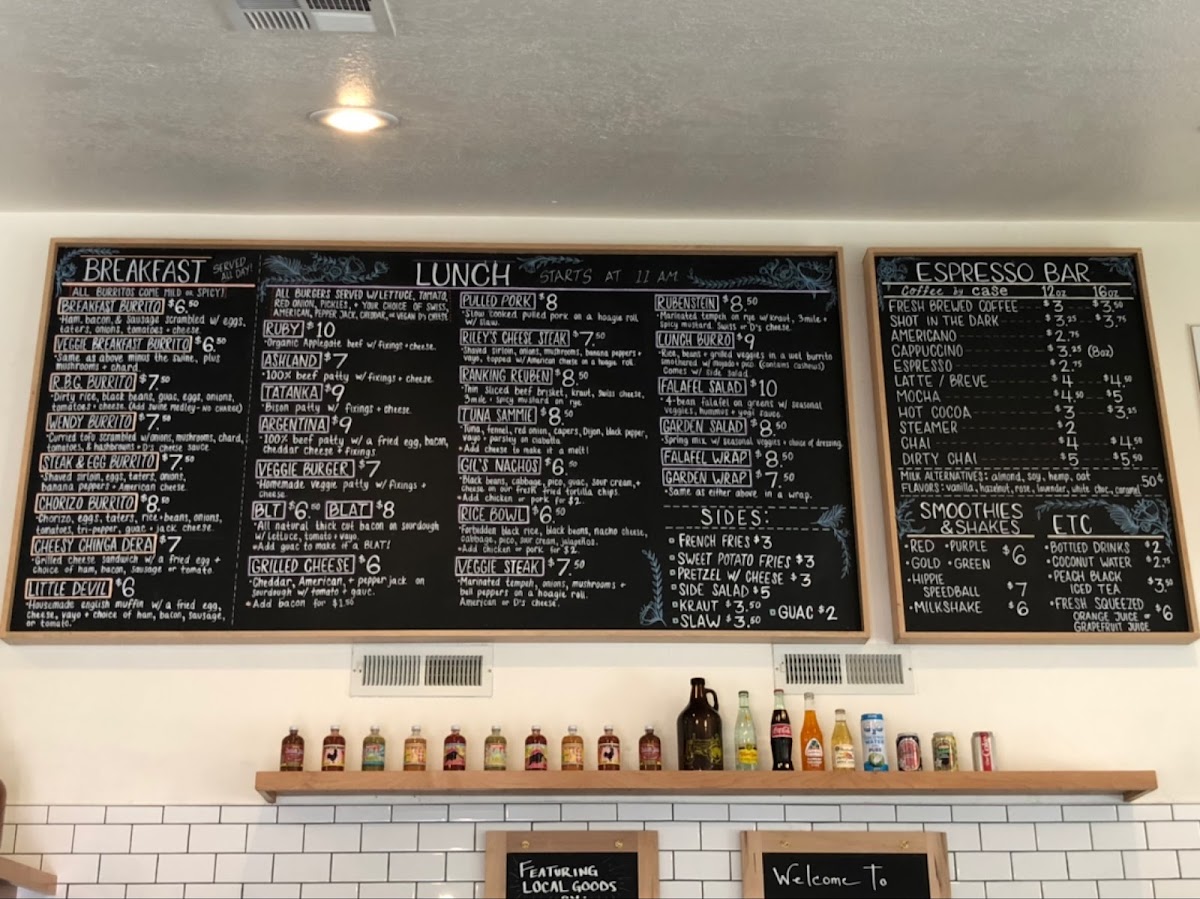 BREAKFAST SERVED ALL DAY!
ALL BURRITOS COME MILD OR SPICY!
BREAKFAST BURRITO $6.50
·Ham, bacon, & Sausage scrambled w/ eggs,
taters, onions, tomatoes + cheese.
VEGGIE BREAKFAST BURRITO $6.50
·Same as above minus the swine, plus
mushrooms + chard.
R.B.G. BURRITO $7.50
·Dirty rice, black beans, guac, eggs, onions,
tomatoes + cheese. (Add swine medley - no charge)
WENDY BURRITO $7.50
·Curried tofu scrambled w/onions, mushrooms, chard,
tomatoes, + hashbrowns + D's cheese sauce.
STEAK & EGG BURRITO $7.50
·Shaved sirloin, eggs, taters, onions,
banana peppers + American cheese.
CHORIZO BURRITO $8.50
·Chorizo, eggs, taters, rice + beans, onions,
tomatoes, tri-pepper, guac + jack cheese.
CHEESY CHINGA DERA $7
·Grilled cheese sandwich w/ a fried egg +
choice of ham, bacon, sausage or tomato.
LITTLE DEVIL $6
·Housemade english muffin w/ a fried egg,
cheese, vayo + choice of ham, bacon, sausage,
or tomato.
LUNCH STARTS AT 11 AM
ALL BURGERS SERVED W/LETTUCE, TOMATO,
RED ONION, PICKLES, + YOUR CHOICE OF SWISS,
AMERICAN, PEPPER JACK, CHEDDAR, + VEGAN D's CHEESE
RUBY $10
·Organic Applegate beef w/ fixings + cheese.
ASHLAND $7
·100% beef patty w/ fixings + cheese.
TATANKA $9
Bison patty w/ fixings + cheese.
ARGENTINA $9
·100% beef patty w/ a fried egg, bacon,
cheddar cheese + fixings.
VEGGIE BURGER $7
·Homemade veggie patty w/ fixings +
cheese.
BLT $6.50 BLAT $8
·All natural thick cut bacon on sourdough
w/ lettuce, tomato + vayo.
·Add guac to make it a BLAT!
GRILLED CHEESE $6
·Cheddar, American, + pepper jack on
sourdough w/ tomato + guac.
·Add bacon for $1.50
PULLED PORK $8
·Slow cooked pulled pork on a hoagie roll
w/ slaw.
RILEY'S CHEESE STEAK $7.50
·Shaved sirloin, onions, mushrooms, banana peppers +
vayo, topped w/ American cheese on a hoagie roll.
RANKING REUBEN $8.50
·Thin sliced beef brisket, kraut, swiss cheese,
3mile + spicy mustard on rye.
TUNA SAMMIE $8.50
·Tuna, fennel, red onion, capers, Dijon, black pepper,
vayo + parsley on ciabatta
·Add cheese to make it a melt!
GIL'S NACHOS $6.50
·Black beans, cabbage, pico, guac, sour cream, +
cheese on our fresh fried tortilla chips.
·Add chicken or pork for $2.
RICE BOWL $6.50
·Forbidden black rice, black beans, nacho cheese,
cabbage, pico, sour cream, jalapeños.
·Add chicken or pork for $2.
VEGGIE STEAK $7.50
·Marinated tempeh, onions, mushrooms +
bell peppers on a hoagie roll.
American or D's cheese.
RUBENSTEIN $8.50
·Marinated tempeh on rye w/kraut, 3mile +
spicy mustard. Swiss or D's cheese.
LUNCH BURRO $9
·Rice, beans + grilled veggies in a wet burrito
smothered w/ miyado + pico. (contains cashews)
Comes w/ side salad.
FALAFEL SALAD $10
·4-bean falafel on greens w/ seasonal
veggies, hummus + yogi sauce.
GARDEN SALAD $8.50
·Spring mix w/ seasonal veggies + choice of dressing.
FALAFEL WRAP $8.50
GARDEN WRAP $7.50
·Same as either above in a wrap.
SIDES:
FRENCH FRIES $3
SWEET POTATO FRIES $3
PRETZEL W/ CHEESE $3
SIDE SALAD $5
KRAUT $3.50
SLAW $3.50
GUAC $2
ESPRESSO BAR
Coffee by CASE 12oz 16oz
FRESH BREWED COFFEE $3 $3.50
SHOT IN THE DARK $3.25 $3.75
AMERICANO $2.75
CAPPUCCINO $3.25 (8oz)
ESPRESSO $2.75
LATTE / BREVE $4 $4.50
MOCHA $4.50 $5
HOT COCOA $3 $3.25
STEAMER $2
CHAI $4 $4.50
DIRTY CHAI $5 $5.50
MILK ALTERNATIVES: almond, soy, hemp, oat
FLAVORS: vanilla, hazelnut, rose, lavender, white choc, caramel 50¢
SMOOTHIES
& SHAKES
·RED ·PURPLE
·GOLD ·GREEN $6
·HIPPIE
SPEEDBALL $7
·MILKSHAKE $6
ETC
·BOTTLED DRINKS $2
·COCONUT WATER $2.75
·PEACH BLACK
ICED TEA $3.50
·FRESH SQUEEZED
ORANGE JUICE - $6
GRAPEFRUIT JUICE
FEATURING
LOCAL GOODS
Welcome To